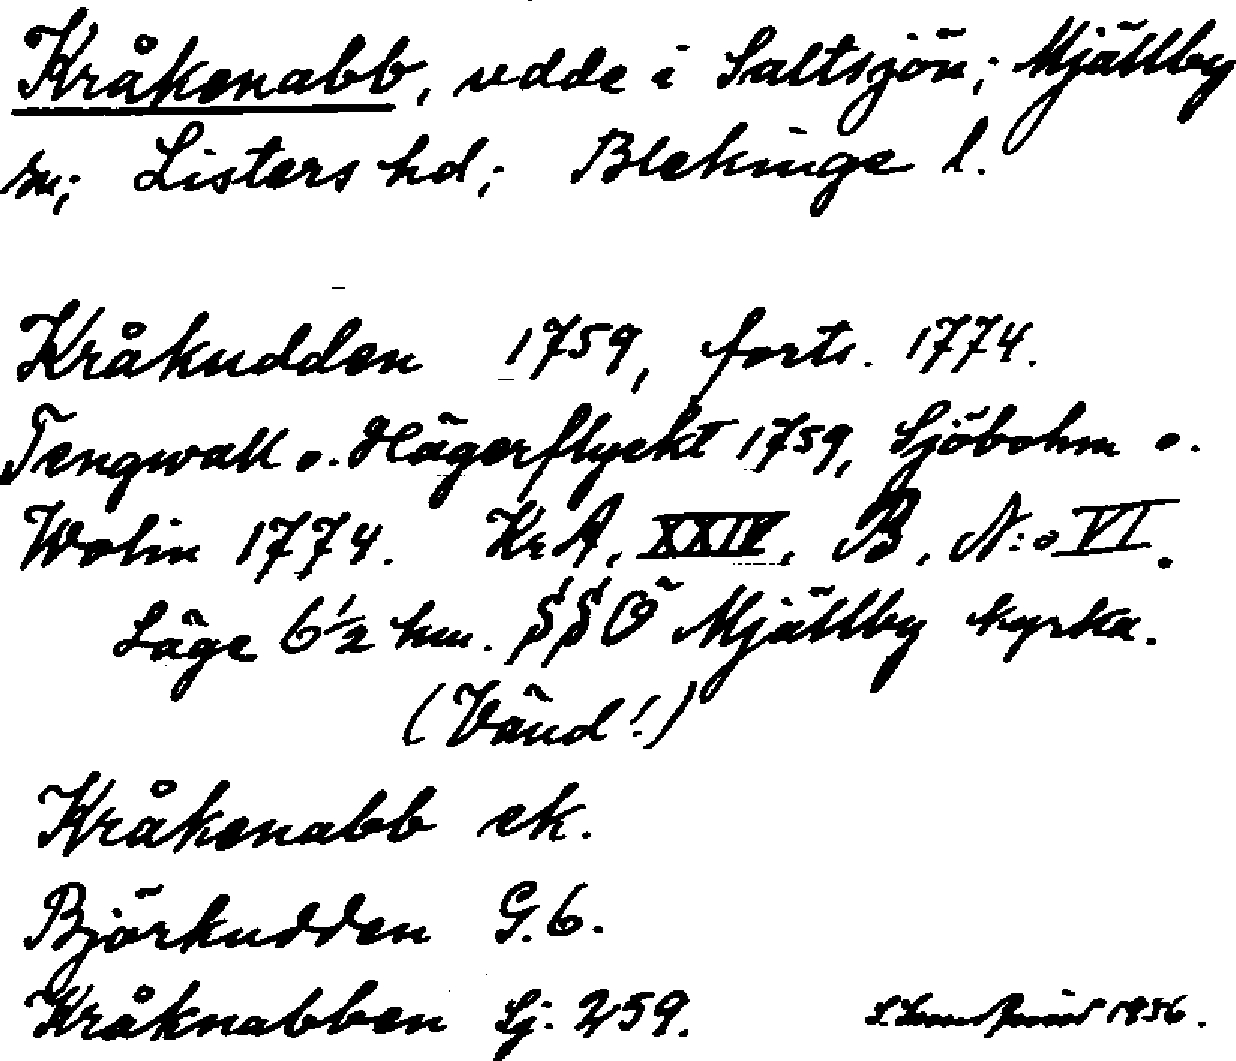 Kråkenabb, udde i Saltsjön; Mjällby
sn; Listers hd; Blekinge l.
Kråkudden 1759, forts. 1774.
Tengwall o. Hägerflyckt 1759, Sjöbohm o.
Wolin 1774. KrA, XXIV, B, N:o VI.
Läge 6 1/2 km. SSÖ Mjällby kyrka.
(Vänd!)
Kråkenabb ek.
Björkudden G.6.
Kråknabben Sj. 259. 1956.